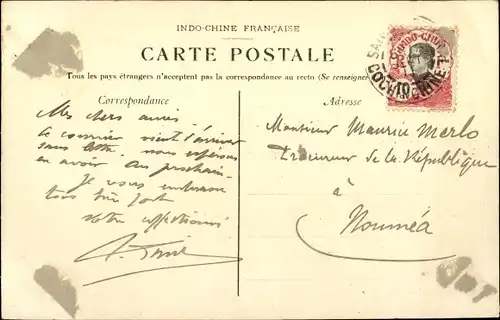 INDO-CHINE FRANÇAISE
CARTE POSTALE
Tous les pays étrangers n'acceptent pas la correspondance au recto (Se renseigner
Correspondance
Adresse
Mes chers amis
Le courrier vient d'arriver
sans lettre. nous espérons
en avoir au prochain.
Je vous embrasse
tous très fort
votre affectionné
Monsieur Maurice Merlo
Procureur de la République
à
Nouméa
INDO-CHINE
COCHINCHINE